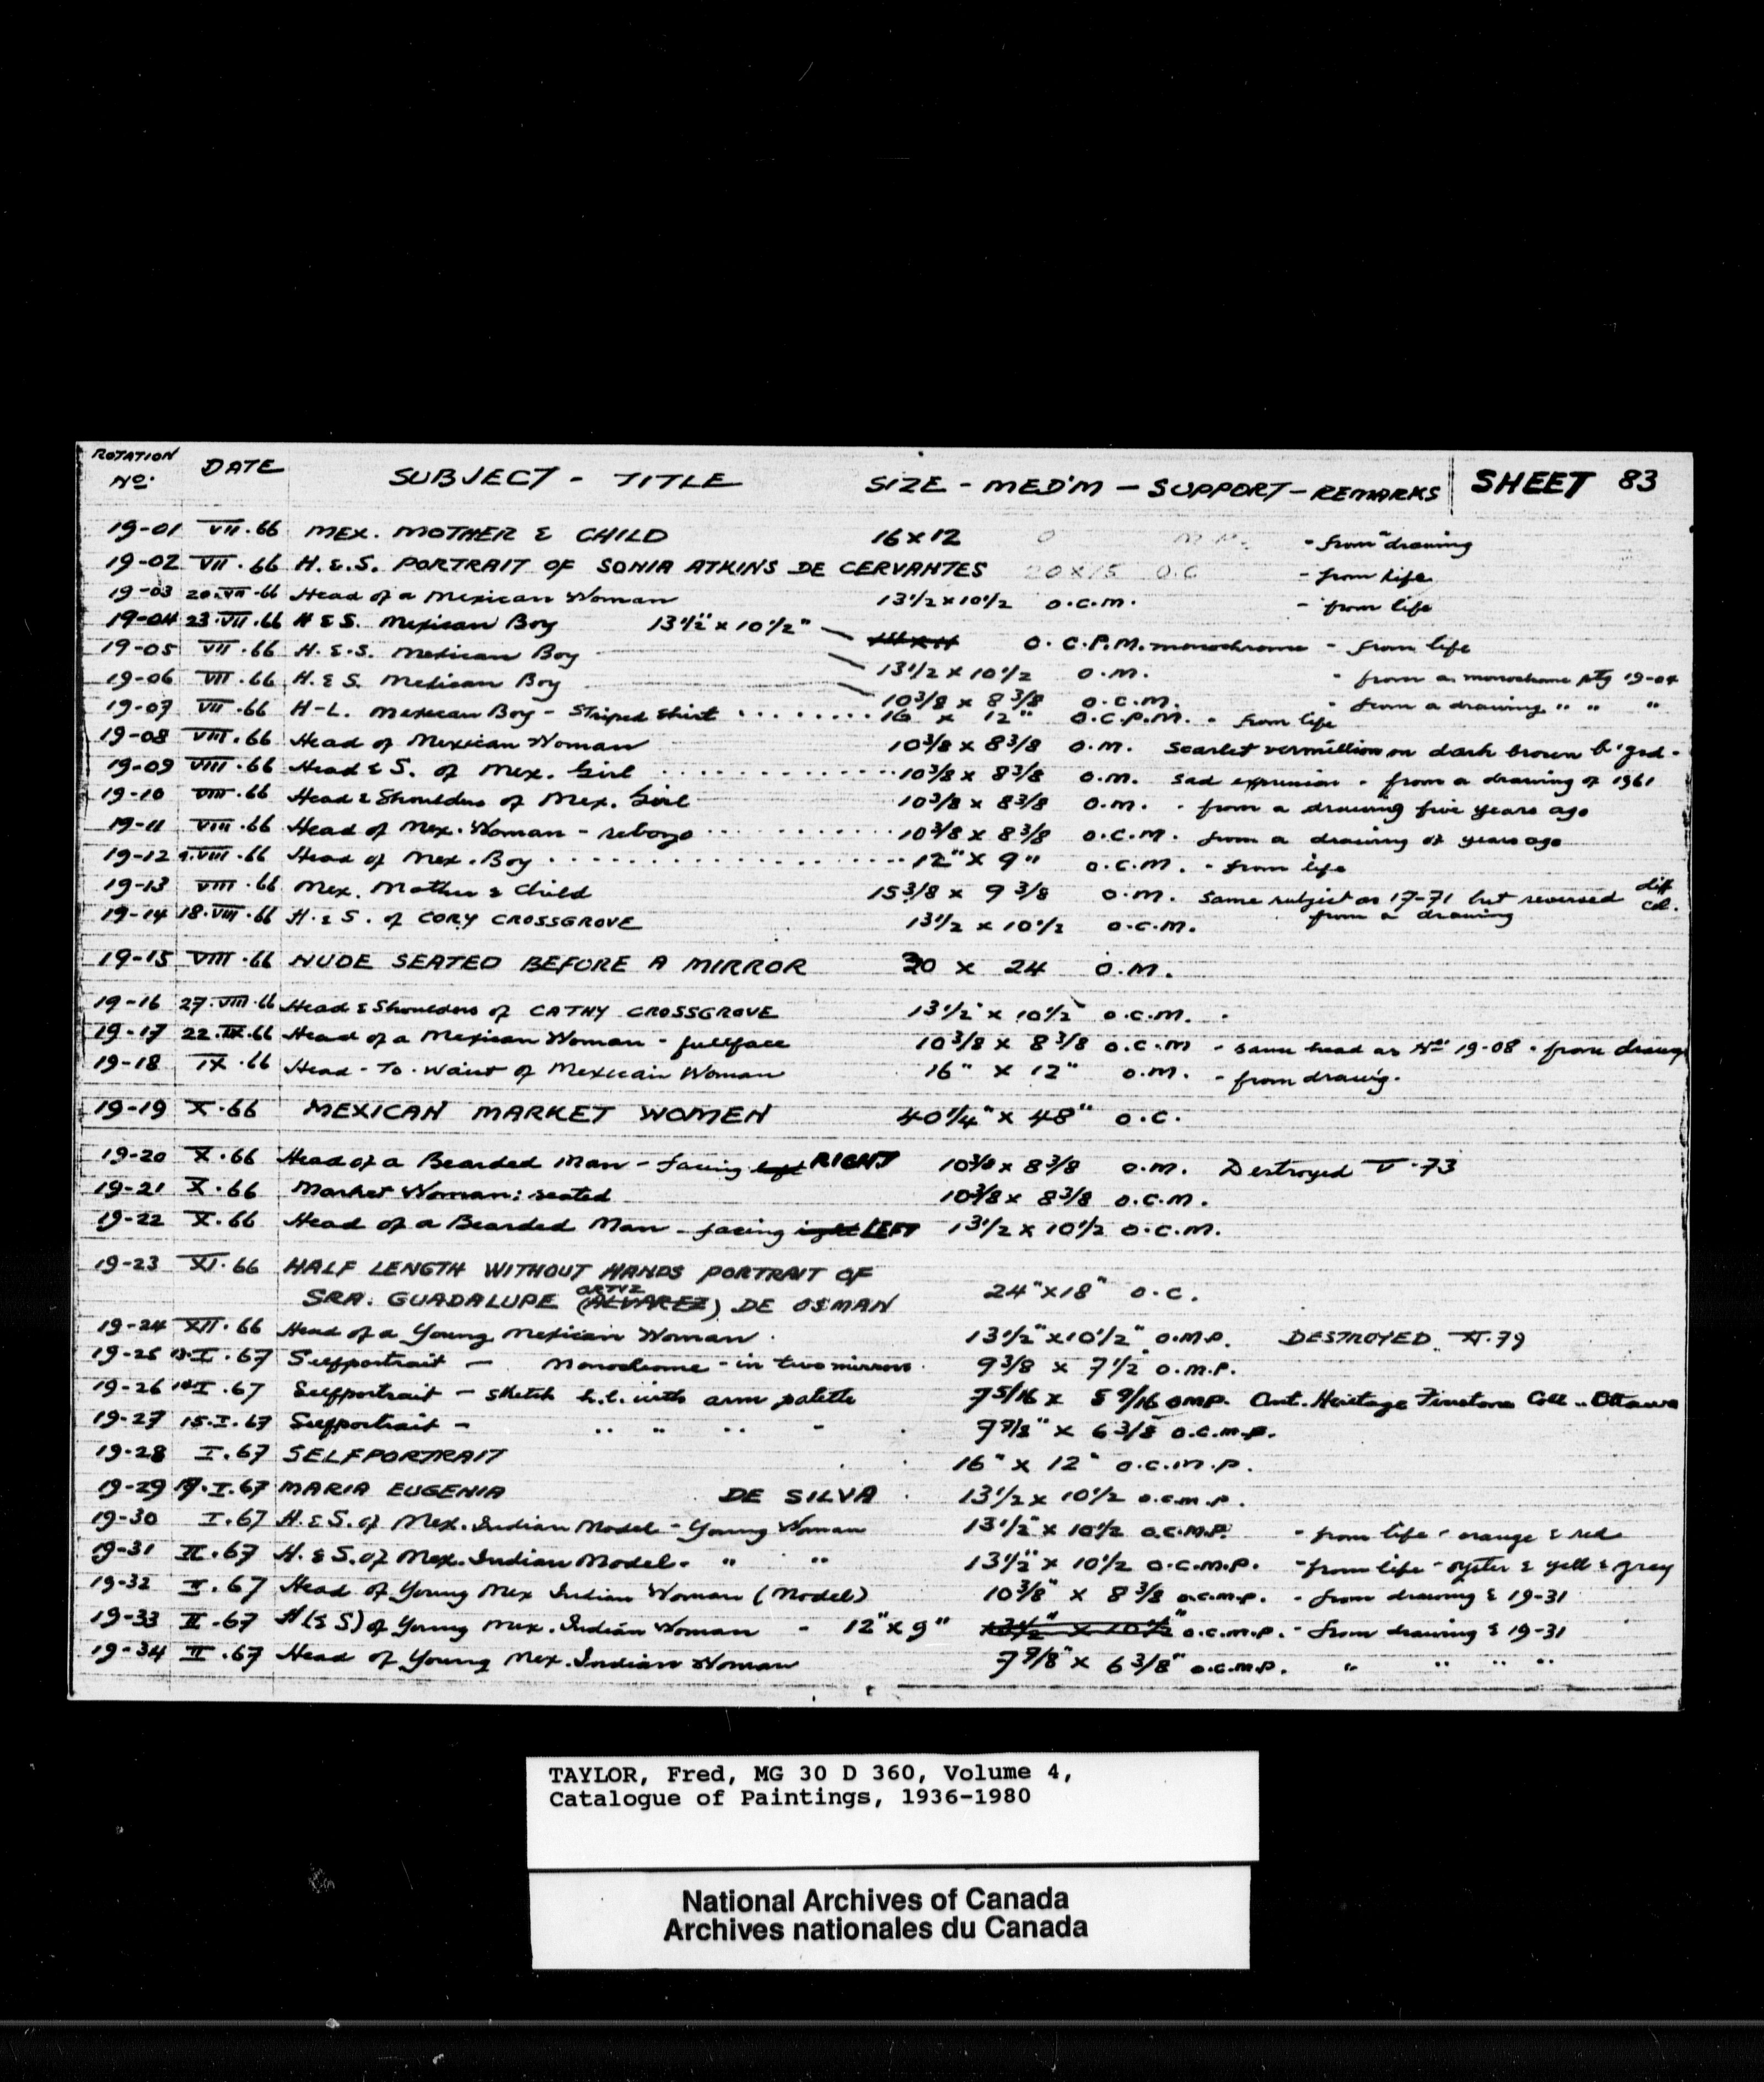 ROTATION No. DATE SUBJECT - TITLE SIZE - MED'M - SUPPORT - REMARKS SHEET 83
19-01 VII.66 MEX. MOTHER & CHILD 16 x 12 O - from drawing
19-02 VII.66 H.&.S. PORTRAIT OF SONIA ATKINS DE CERVANTES 20 x 15 O.C - from life
19-03 20.VII.66 Head of a Mexican Woman 13 1/2 x 10 1/2 o.c.m. - from life
19-04 23.VII.66 H & S. Mexican Boy 13 1/2" x 10 1/2" O.C.P.M. monochrome - from life
19-05 VII.66 H.&.S. Mexican Boy 13 1/2 x 10 1/2 O.M. - from a monochrome ptg 19-04
19-06 VII.66 H.& S. Mexican Boy 10 3/8 x 8 3/8 O.C.M. - from a drawing " " "
19-07 VII.66 H-L. Mexican Boy - Striped Shirt ........ 16 x 12" O.C.P.M. - from life
19-08 VIII.66 Head of Mexican Woman 10 3/8 x 8 3/8 O.M. Scarlet vermillion on dark brown b'grd -
19-09 VIII.66 Head & S. of Mex. Girl ............ 10 3/8 x 8 3/8 O.M. sad expression - from a drawing of 1961
19-10 VIII.66 Head & Shoulders of Mex. Girl 10 3/8 x 8 3/8 O.M. - from a drawing five years ago
19-11 VIII.66 Head of Mex. Woman - rebozo .......... 10 3/8 x 8 3/8 O.C.M. from a drawing of years ago
19-12 9.VIII.66 Head of Mex. Boy .................. 12" x 9" O.C.M. - from life
19-13 VIII.66 Mex. Mother & Child 15 3/8 x 9 3/8 O.M. Same subject as 17-71 but reversed diff col.
from a drawing
19-14 18.VIII.66 H.& S. of CORY CROSSGROVE 13 1/2 x 10 1/2 O.C.M.
19-15 VIII.66 NUDE SEATED BEFORE A MIRROR 30 x 24 O.M.
19-16 27.VIII.66 Head & Shoulders of CATHY CROSSGROVE 13 1/2 x 10 1/2 O.C.M. -
19-17 22.IX.66 Head of a Mexican Woman - fullface 10 3/8 x 8 3/8 O.C.M - same head as No. 19-08 - from drawg
19-18 IX.66 Head-To-waist of Mexican Woman 16" x 12" O.M. - from drawg.
19-19 X.66 MEXICAN MARKET WOMEN 40 1/4" x 48" O.C.
19-20 X.66 Head of a Bearded Man - facing left RIGHT 10 3/8 x 8 3/8 O.M. Destroyed V.73
19-21 X.66 Market Woman: seated 10 3/8 x 8 3/8 O.C.M.
19-22 X.66 Head of a Bearded Man - facing right LEFT 13 1/2 x 10 1/2 O.C.M.
19-23 XI.66 HALF LENGTH WITHOUT HANDS PORTRAIT OF
SRA. GUADALUPE (ALVAREZ) ORTIZ DE OSMAN 24" x 18" O.C.
19-24 XII.66 Head of a Young Mexican Woman. 13 1/2" x 10 1/2" O.M.P. DESTROYED XI.79
19-25 I.67 Selfportrait - Monochrome - in two mirrors. 9 3/8 x 7 1/2 O.M.P.
19-26 I.67 Selfportrait - sketch h.l. with arm palette 7 5/16 x 5 9/16 OMP. Ont. Heritage Firestone Coll - Ottawa
19-27 15.I.67 Selfportrait - " " " - 9 7/8" x 6 3/8 O.C.M.P.
19-28 I.67 SELFPORTRAIT 16" x 12" O.C.M.P.
19-29 I.67 MARIA EUGENIA DE SILVA 13 1/2 x 10 1/2 O.C.M.P.
19-30 I.67 H.& S. of Mex. Indian Model - Young Woman 13 1/2" x 10 1/2 O.C.M.P. - from life - orange & red
19-31 II.67 H.& S. of Mex. Indian Model - " " 13 1/2" x 10 1/2 O.C.M.P. - from life - oyster & yell & gray
19-32 II.67 Head of Young Mex Indian Woman (Model) 10 3/8" x 8 3/8 O.C.M.P. - from drawing & 19-31
19-33 II.67 H(& S) of Young Mex. Indian Woman - 12" x 9" 13 1/2" x 10 1/2" O.C.M.P. - from drawing & 19-31
19-34 II.67 Head of Young Mex. Indian Woman 7 7/8" x 6 3/8" O.C.M.P. " " " "
TAYLOR, Fred, MG 30 D 360, Volume 4,
Catalogue of Paintings, 1936-1980
National Archives of Canada
Archives nationales du Canada